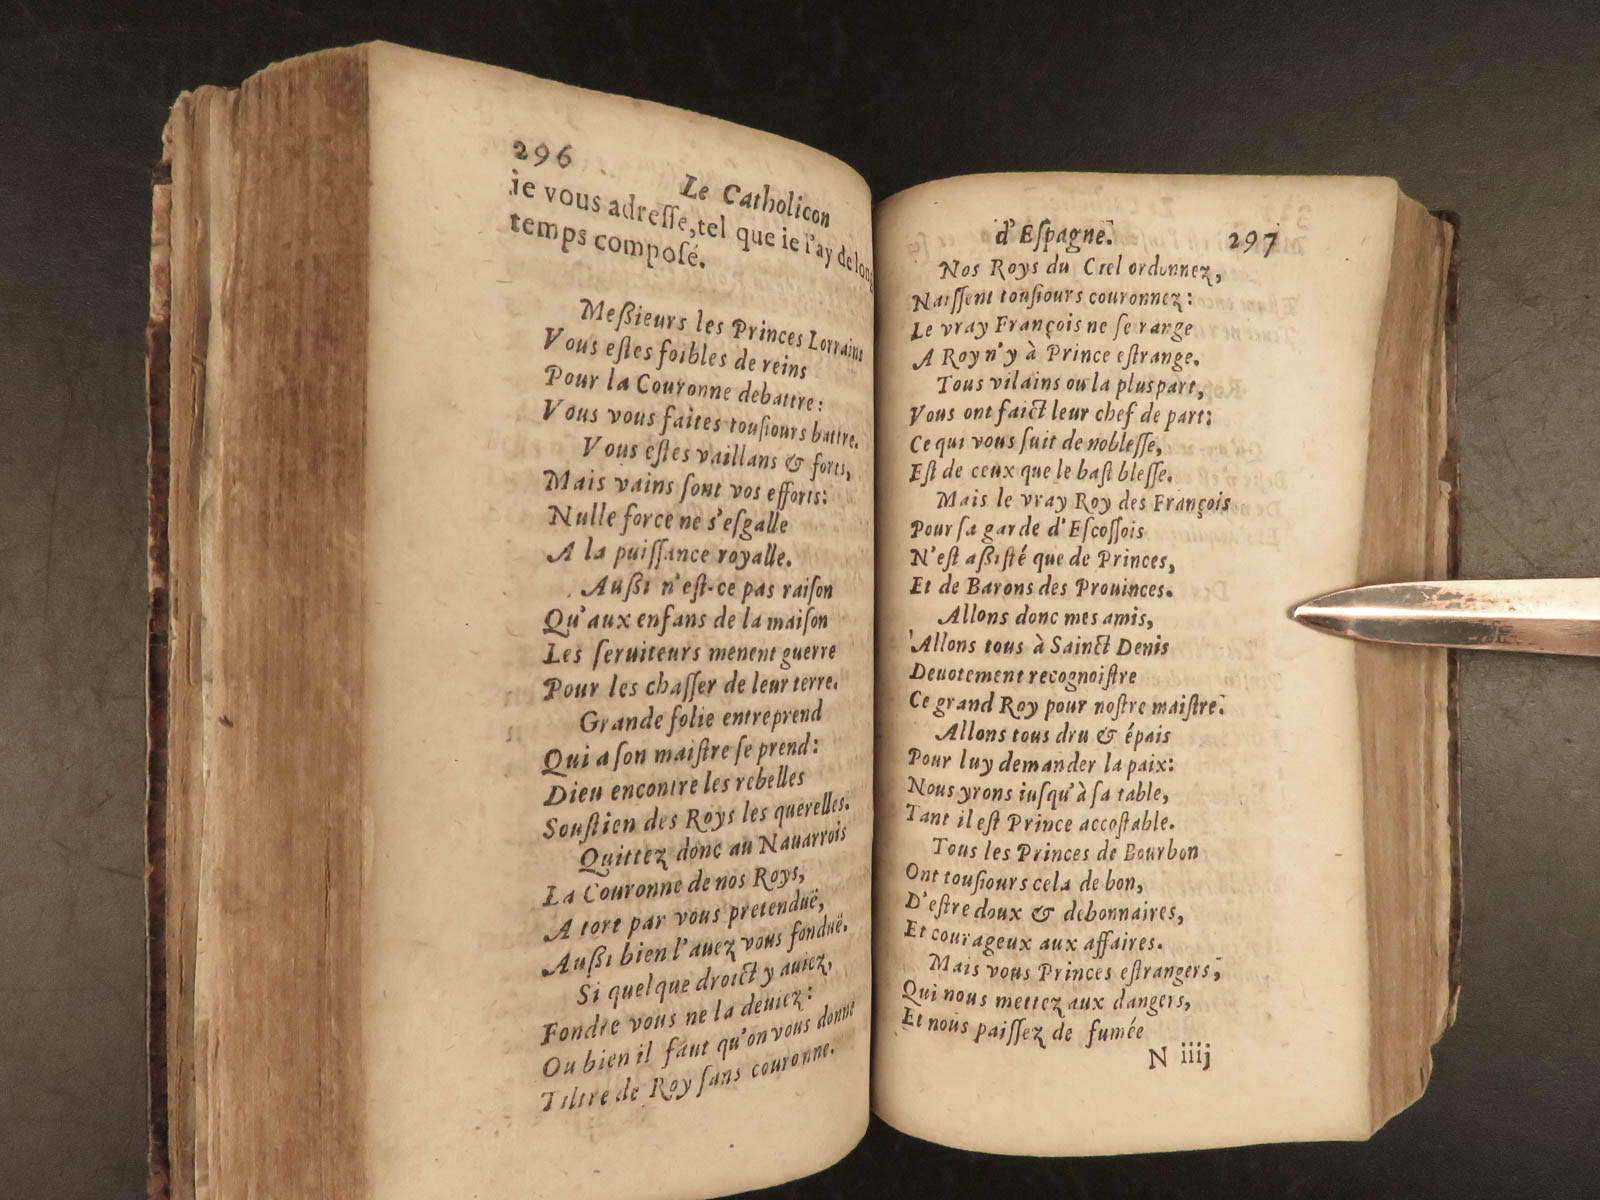 296
Le Catholicon
ie vous adreſſe, tel que ie l'ay de long
temps compoſé.
Meßieurs les Princes Lorrains
Vous eſtes foibles de reins
Pour la Couronne debattre:
Vous vous faites touſiours battre.
Vous eſtes vaillans & forts,
Mais vains ſont vos efforts:
Nulle force ne s'eſgalle
A la puiſſance royalle.
Außi n'eſt-ce pas raiſon
Qu'aux enfans de la maiſon
Les ſeruiteurs menent guerre
Pour les chaſſer de leur terre.
Grande folie entreprend
Qui a ſon maiſtre ſe prend:
Dieu encontre les rebelles
Souſtien des Roys les querelles.
Quittez donc au Nauarrois
La Couronne de nos Roys,
A tort par vous pretenduë,
Außi bien l'auez vous fonduë.
Si quelque droict y auiez,
Fondre vous ne la deuiez:
Ou bien il faut qu'on vous donne
Tiltre de Roy ſans couronne.
d'Eſpagne. 297
Nos Roys du Ciel ordonnez,
Naiſſent touſiours couronnez:
Le vray François ne ſe range
A Roy n'y à Prince eſtrange.
Tous vilains ou la pluspart,
Vous ont faict leur chef de part:
Ce qui vous ſuit de nobleſſe,
Eſt de ceux que le baſt bleſſe.
Mais le vray Roy des François
Pour ſa garde d'Eſcoſſois
N'eſt aßiſté que de Princes,
Et de Barons des Prouinces.
Allons donc mes amis,
Allons tous à Sainct Denis
Deuotement recognoiſtre
Ce grand Roy pour noſtre maiſtre.
Allons tous dru & épais
Pour luy demander la paix:
Nous yrons iuſqu'à ſa table,
Tant il eſt Prince accoſtable.
Tous les Princes de Bourbon
Ont touſiours cela de bon,
D'eſtre doux & debonnaires,
Et courageux aux affaires.
Mais vous Princes eſtrangers,
Qui nous mettez aux dangers,
Et nous paiſſez de fumée
N iiij